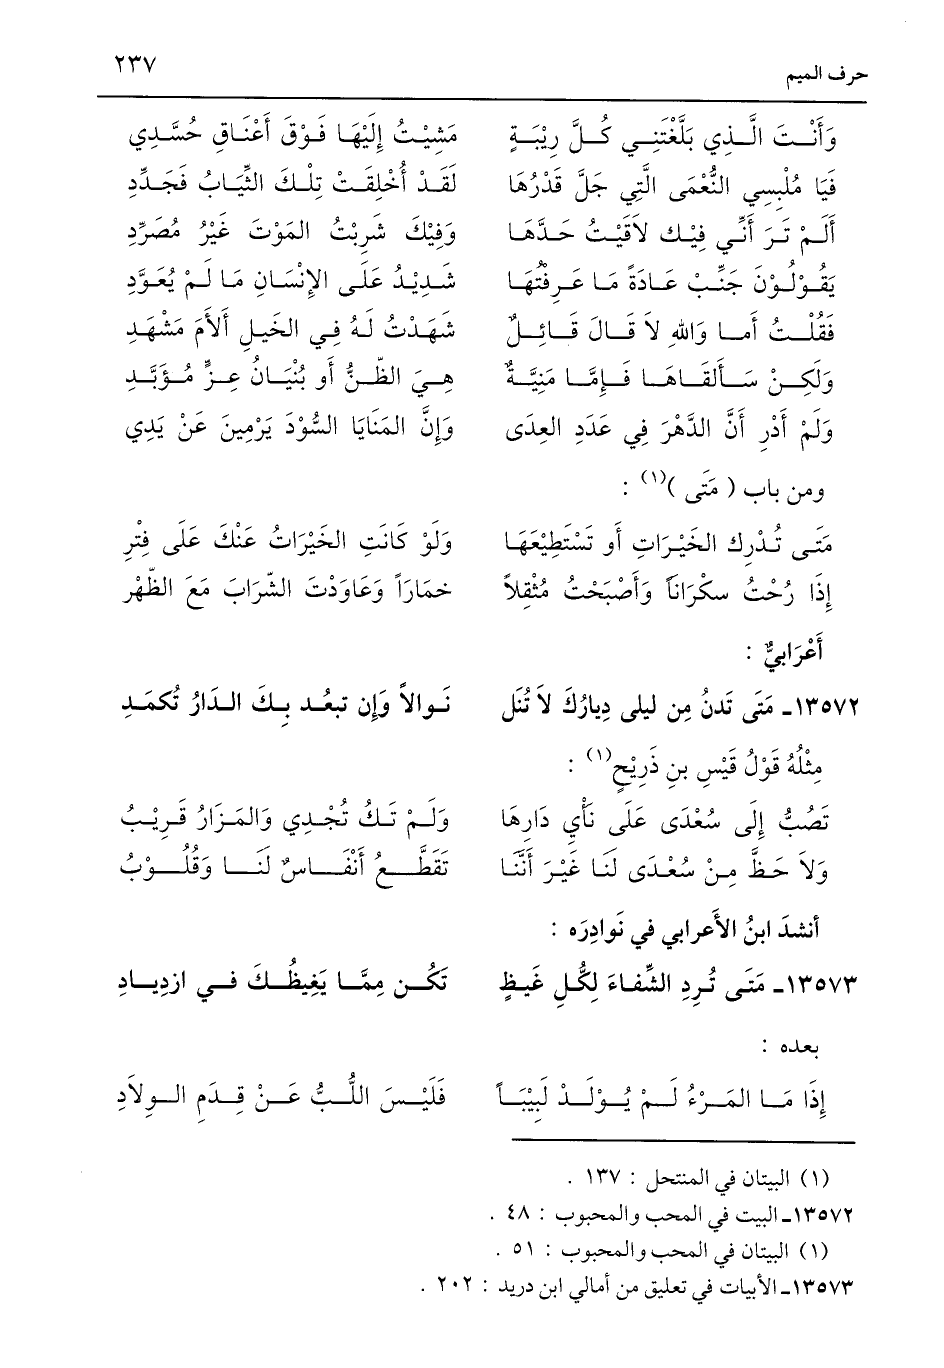 حرف الميم ٢٣٧
وَأَنْتَ الَّذِي بَلَّغْتَنِي كُلَّ رِيْبَةٍ مَشِيْتُ إِلَيْهَا فَوْقَ أَعْنَاقِ حُسَّدِي
فَيَا مُلْبِسِي النُّعْمَى الَّتِي جَلَّ قَدْرُهَا لَقَدْ أُخْلِقَتْ تِلْكَ الثِّيَابُ فَجَدِّدِ
أَلَمْ تَرَ أَنِّي فِيْكَ لاَقَيْتُ حَدَّهَا وَفِيْكَ شَرِبْتُ المَوْتَ غَيْرُ مُصَرَّدِ
يَقُوْلُوْنَ جَنِّبْ عَادَةً مَا عَرِفْتَهَا شَدِيْدُ عَلَى الإِنْسَانِ مَا لَمْ يُعَوَّدِ
فَقُلْتُ أَمَا وَاللهِ لاَ قَالَ قَائِلٌ شَهَدْتُ لَهُ فِي الخَيْلِ أَلأَمَ مَشْهَدِ
وَلَكِنْ سَأَلقَاهَا فَإِمَّا مَنِيَّةٌ هِيَ الظَّنُّ أَو بُنْيَانُ عِزٍّ مُؤَبَّدِ
وَلَمْ أَدْرِ أَنَّ الدَّهْرَ فِي عَدَدِ العِدَى وَإِنَّ المَنَايَا السُّوْدَ يَرْمِينَ عَنْ يَدِي
ومن باب ( مَتَى )(١) :
مَتَى تُدْرِكُ الخَيْرَاتِ أَو تَسْتَطِيْعَهَا وَلَوْ كَانَتِ الخَيْرَاتُ عَنْكَ عَلَى فِتْرِ
إِذَا رُحْتُ سكْرَاناً وَأَصْبَحْتُ مُثْقِلاً خمَاراً وَعَاوَدْتَ الشَّرَابَ مَعَ الظَّهْرِ
أَعْرَابيٌّ :
١٣٥٧٢ـ مَتَى تَدنُ مِن ليلى دِيارُكَ لاَ تُنَل نَوالاً وَإِن تبعُد بِكَ الدارُ تُكمَدِ
مِثْلُهُ قَوْلُ قَيْسِ بنِ ذَرِيْحٍ(١) :
تَصُبُّ إِلَى سُعْدَى عَلَى نَأيِ دَارِهَا وَلَمْ تَكُ تُجْدِي وَالمَزَارُ قَرِيْبُ
وَلاَ حَظَّ مِنْ سُعْدَى لَنَا غَيْرَ أَنَّنَا تَقَطَّعُ أَنْفَاسٌ لَنَا وَقُلُوْبُ
أنشدَ ابنُ الأعرابي في نَوادِرَه :
١٣٥٧٣ـ مَتَى تُرِدِ الشِّفاءَ لِكُلِ غَيظٍ تَكُن مِمَّا يَغِيظُكَ فِي ازدِيادِ
بعده :
إِذَا مَا المَرْءُ لَمْ يُوْلَدْ لَبِيْبَاً فَلَيْسَ اللُّبُّ عَنْ قِدَمِ الوِلاَدِ
(١) البيتان في المنتحل : ١٣٧ .
١٣٥٧٢ـ البيت في المحب والمحبوب : ٤٨ .
(١) البيتان في المحب والمحبوب : ٥١ .
١٣٥٧٣ـ الأبيات في تعليق من أمالي ابن دريد : ٢٠٢ .